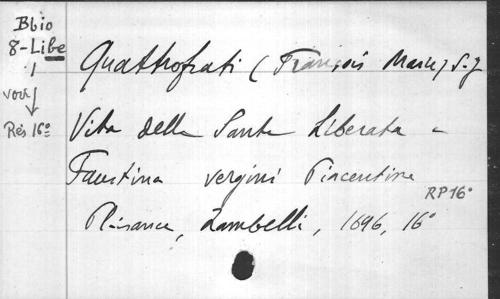 Bbio
8-Libe
1
voir
Rés 16º
Quattrofrati (François Marie) S.J
Vita delle Sante Liberata e
Faustina vergini Piacentine
RP16º
Plaisance, Zambelli, 1696, 16º